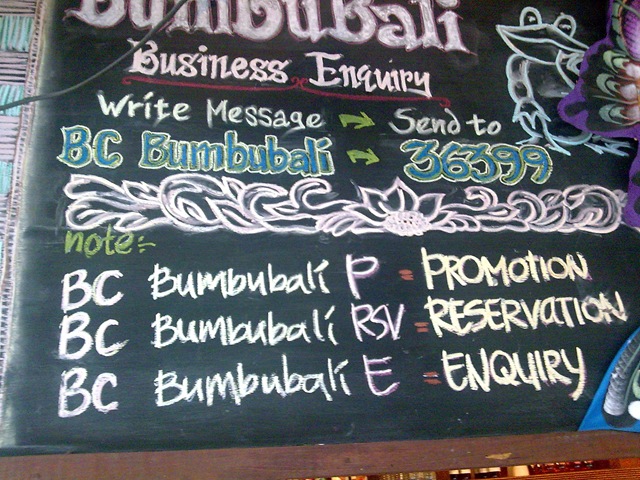 BumbuBali
Business Enquiry
Write Message → Send to
BC Bumbubali → 36399
note:-
BC Bumbubali P = PROMOTION
BC Bumbubali RSV = RESERVATION
BC Bumbubali E = ENQUIRY